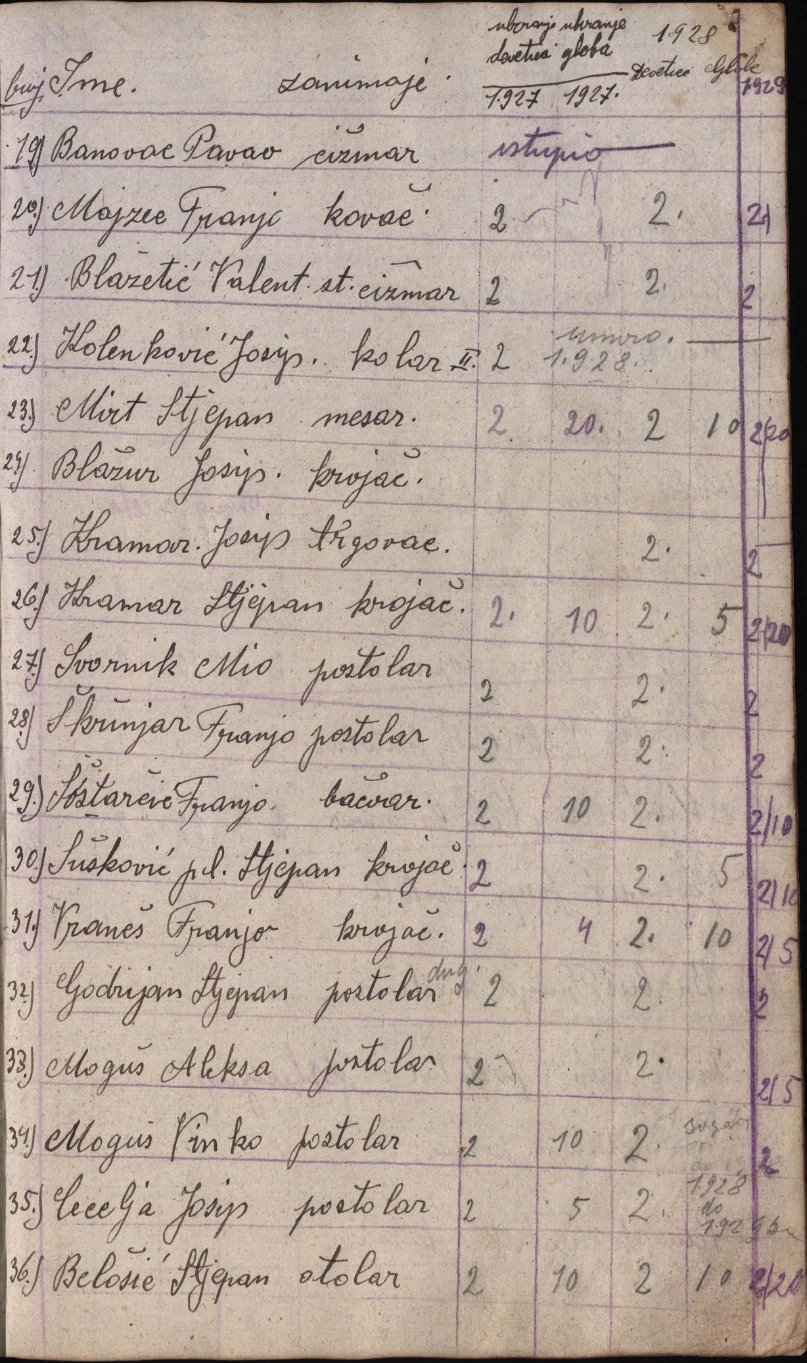 ubiranje ukranje 1928
devetice globa
broj Ime. zanimaje. Devetice Globe
1927 1927. 1929
19) Banovac Pavao čižmar istupio
20.) Majzec Franjo kovač. 2 2. 2
21) Blažetić Valent. st. čižmar 2 2. 2
22.) Kolenković Josip. kolar II. 2 umro. 1.928.
23.) Mirt Stjepan mesar. 2 20. 2 10 2/20
24) Blažur Josip. krojač.
25.) Kramar. Josip trgovac. 2. 2
26.) Kramar Stjepan krojač. 2. 10 2. 5 2/20
27.) Svornik Mio postolar 2 2. 2
28.) Škrinjar Franjo postolar 2 2. 2
29.) Šoštarčić Franjo. bačvar. 2 10 2. 2/10
30.) Sušković pl. Stjepan krojač. 2 2. 5 2/10
31.) Vraneš Franjo krojač. 2 4 2. 10 2/5
32.) Godrijan Stjepan postolar dug. 2 2. 2
33.) Moguš Aleksa postolar 2 2. 2/5
34.) Moguš Vinko postolar 2 10 2. 2
35.) Cecelja Josip postolar 2 5 2. 1928 do 1929
36.) Belošić Stjepan stolar 2 10 2 10 2/20